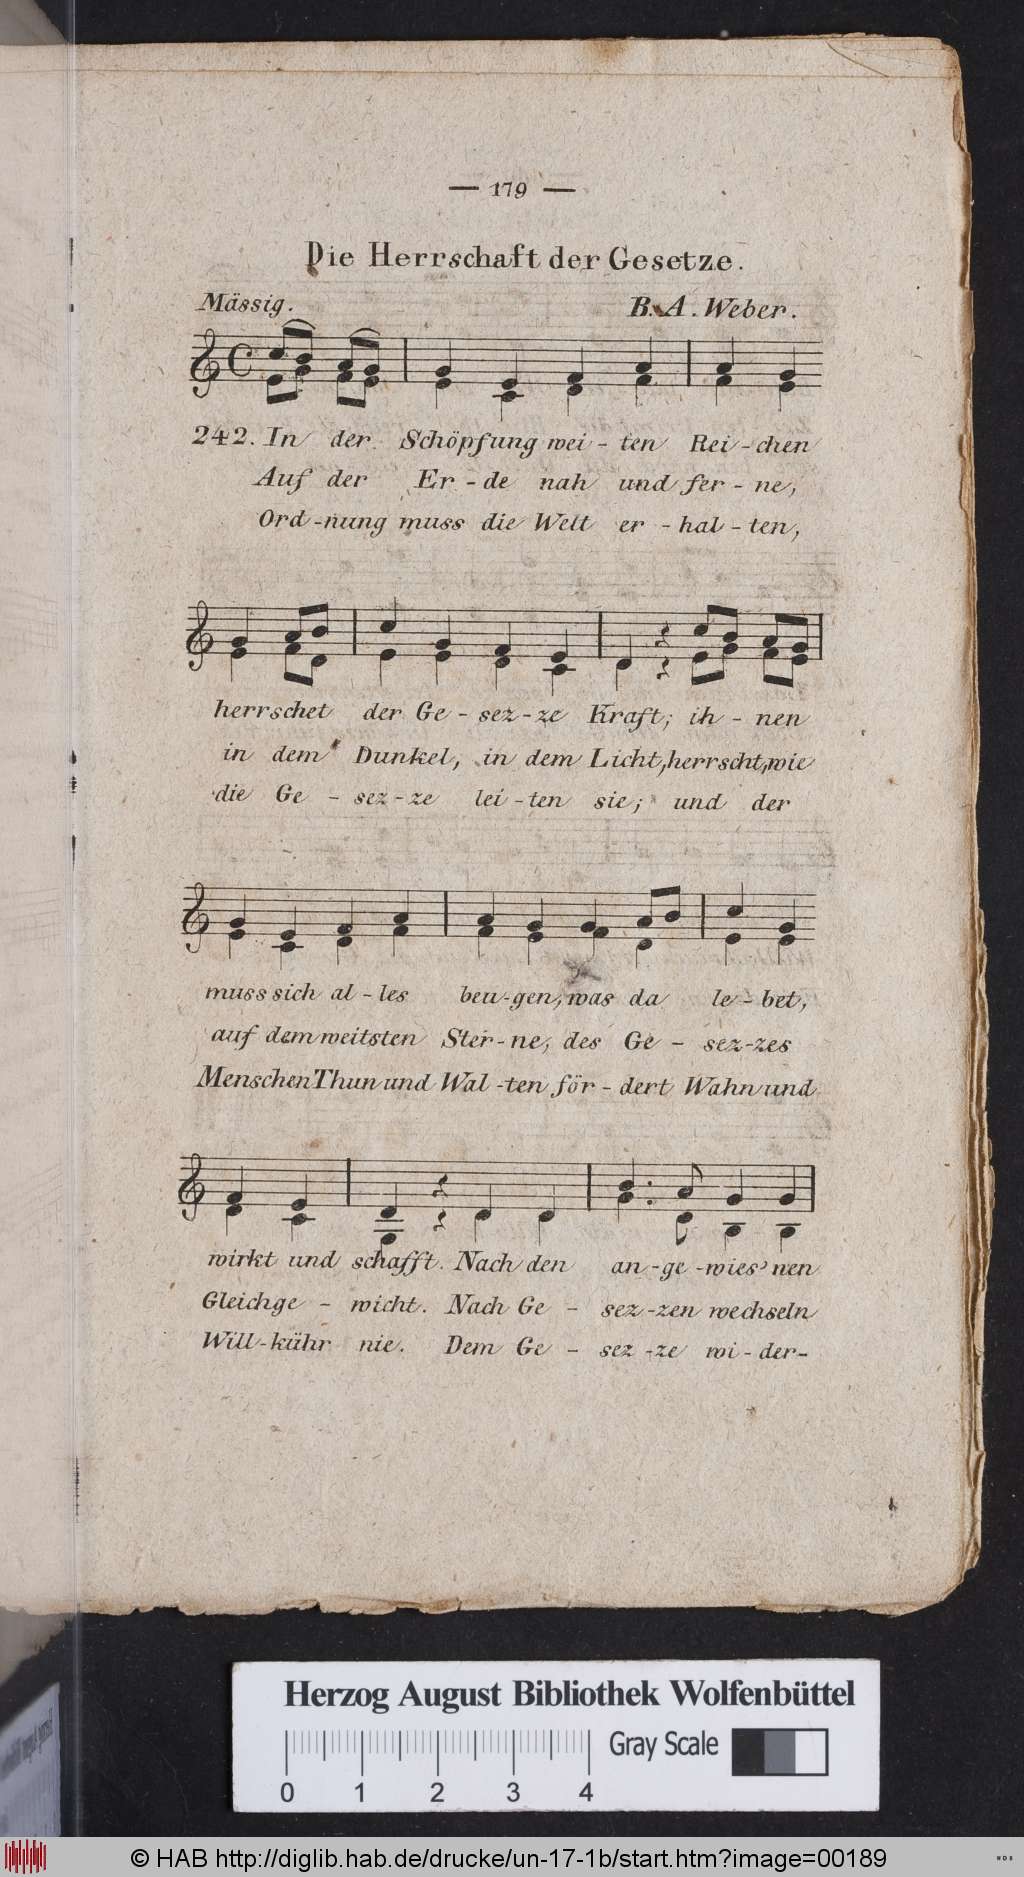 — 179 —
Die Herrschaft der Gesetze.
Mässig. B. A. Weber.
242. In der Schöpfung wei - ten Rei - chen
Auf der Er - de nah und fer - ne,
Ord - nung muss die Welt er - hal - ten,
herrschet der Ge - sez - ze Kraft; ih - nen
in dem Dunkel, in dem Licht, herrscht, wie
die Ge - sez - ze lei - ten sie; und der
muss sich al - les beu - gen, was da le - bet,
auf dem weitsten Ster - ne, des Ge - sez - zes
Menschen Thun und Wal - ten för - dert Wahn und
wirkt und schafft. Nach den an - ge - wies' nen
Gleichge - wicht. Nach Ge - sez - zen wechseln
Will - kühr nie. Dem Ge - sez - ze wi - der -
Herzog August Bibliothek Wolfenbüttel
0 1 2 3 4 Gray Scale
© HAB http://diglib.hab.de/drucke/un-17-1b/start.htm?image=00189